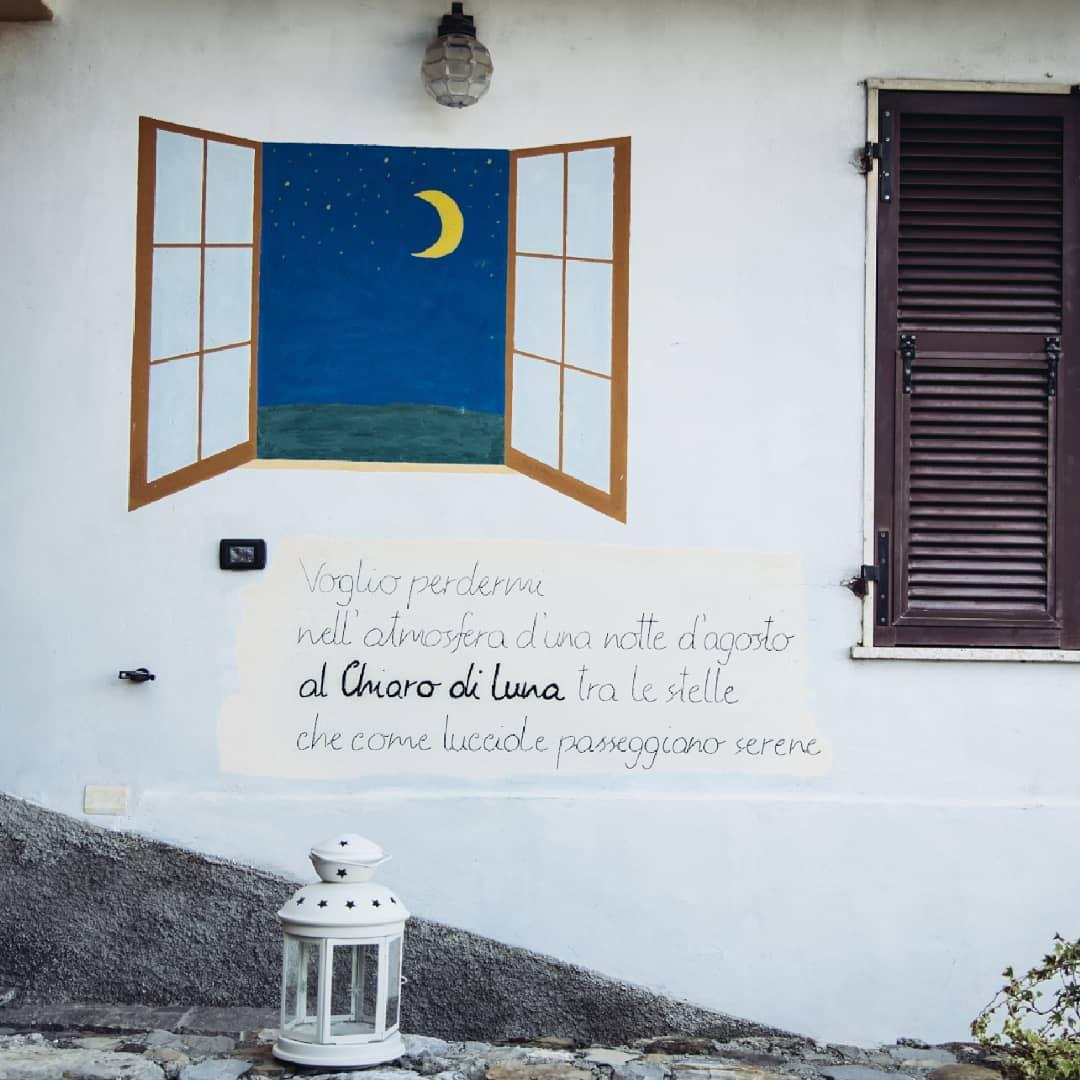 Voglio perdermi
nell'atmosfera d'una notte d'agosto
al Chiaro di luna tra le stelle
che come lucciole passeggiano serene